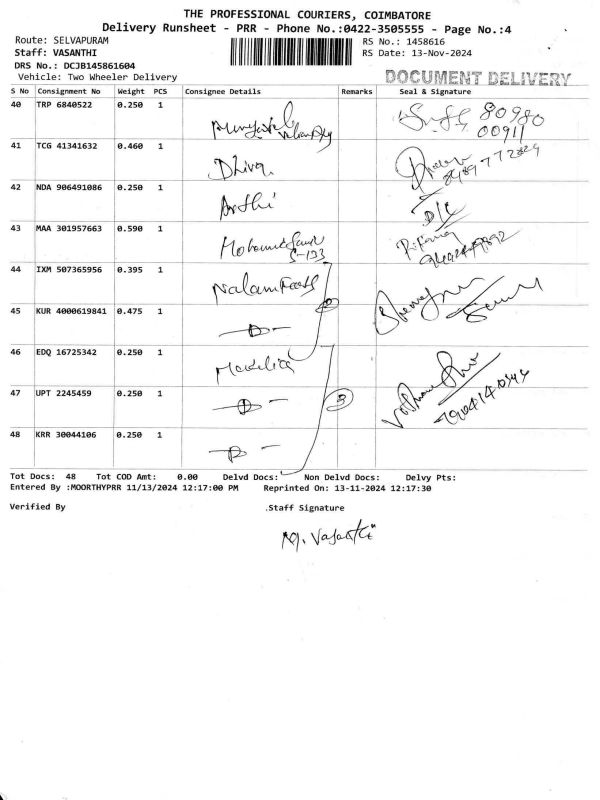 THE PROFESSIONAL COURIERS, COIMBATORE
Delivery Runsheet - PRR - Phone No.:0422-3505555 - Page No.:4
Route: SELVAPURAM
RS No.: 1458616
Staff: VASANTHI
RS Date: 13-Nov-2024
DRS No.: DCJB145861604
Vehicle: Two Wheeler Delivery
DOCUMENT DELIVERY
S No Consignment No Weight PCS Consignee Details Remarks Seal & Signature
40 TRP 6840522 0.250 1 80980
00911
41 TCG 41341632 0.460 1 Dhiva
42 NDA 906491086 0.250 1 Arthi D/C
43 MAA 301957663 0.590 1
S-133
44 IXM 507365956 0.395 1
45 KUR 4000619841 0.475 1
46 EDQ 16725342 0.250 1
47 UPT 2245459 0.250 1 3
48 KRR 30044106 0.250 1
Tot Docs: 48 Tot COD Amt: 0.00 Delvd Docs: Non Delvd Docs: Delvy Pts:
Entered By :MOORTHYPRR 11/13/2024 12:17:00 PM Reprinted On: 13-11-2024 12:17:30
Verified By .Staff Signature
M. Vasanthi